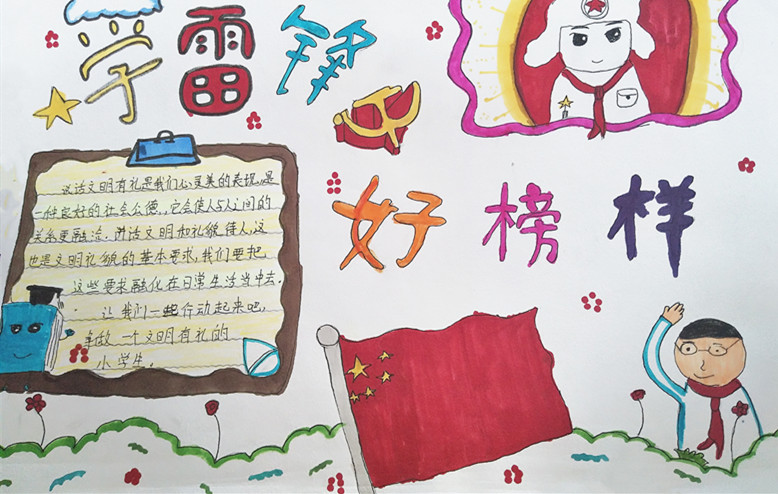 学雷锋
好榜样
说话文明有礼是我们心灵美的表现,是
一种良好的社会公德,它会使人与人之间的
关系更融洽.讲话文明和礼貌待人,这
也是文明礼貌的基本要求,我们要把
这些要求融化在日常生活当中去.
让我们一起行动起来吧,
争做一个文明有礼的
小学生.